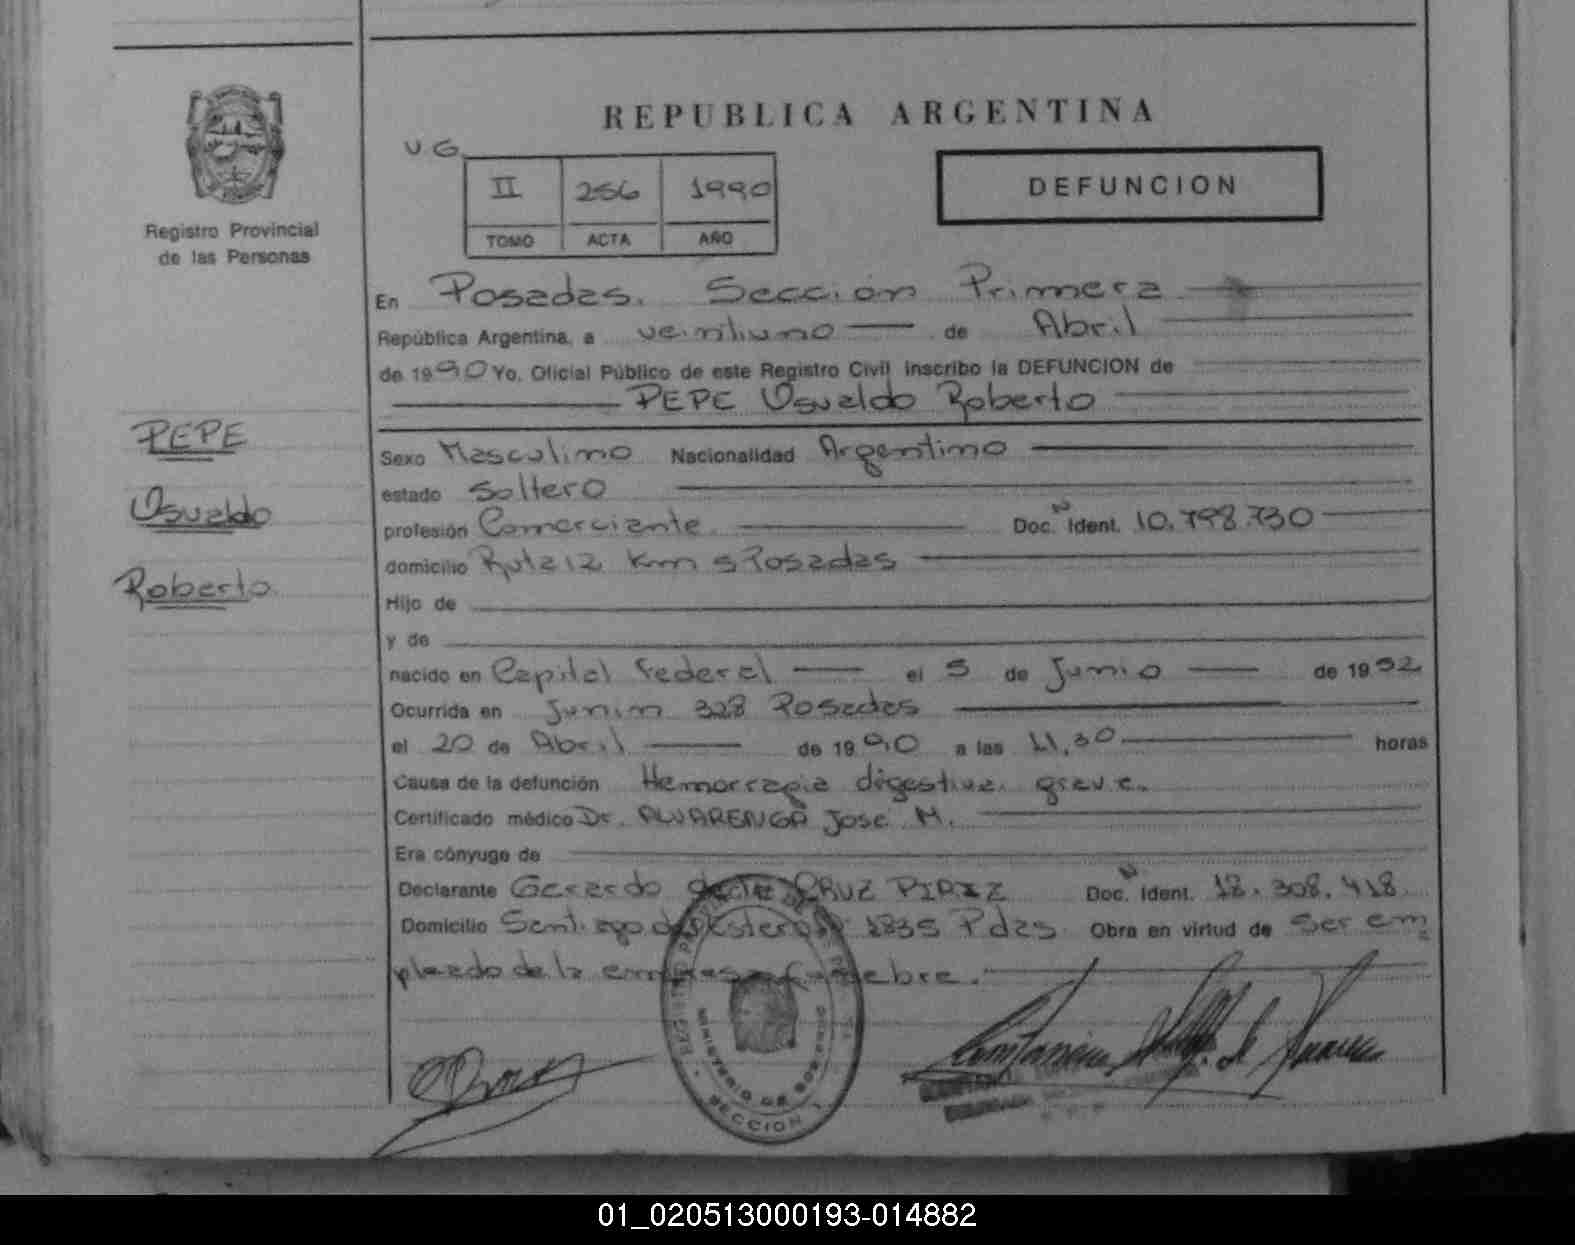 REPUBLICA ARGENTINA
Registro Provincial
de las Personas
UG
II 256 1990
TOMO ACTA AÑO
DEFUNCION
En Posadas. Sección Primera
República Argentina, a veintiuno de Abril
de 1990 Yo, Oficial Público de este Registro Civil inscribo la DEFUNCION de
PEPE Osvaldo Roberto
PEPE
Osvaldo
Roberto
Sexo Masculino Nacionalidad Argentino
estado Soltero
profesión Comerciante Doc. N Ident. 10.798.730
domicilio Ruta 12 Km 5 Posadas
Hijo de
y de
nacido en Capital Federal el 5 de Junio de 1952
Ocurrida en Junin 328 Posadas
el 20 de Abril de 1990 a las 11,30 horas
Causa de la defunción Hemorragia digestiva grave.
Certificado médico Dr. ALVARENGA Jose M.
Era cónyuge de
Declarante Gerardo CRUZ PIREZ Doc. N Ident. 18.308.418
Domicilio Santiago del Estero 1835 Pdas. Obra en virtud de ser em
pleado de la empresa funebre.
MINISTERIO DE GOBIERNO
SECCION 1
01_020513000193-014882